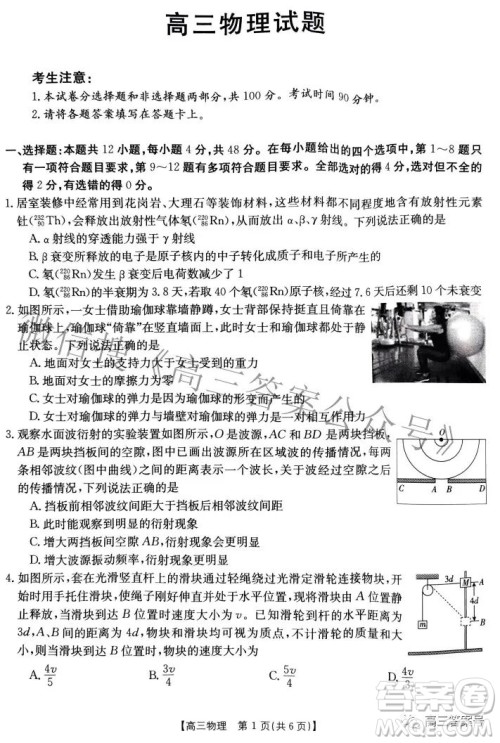 高三物理试题
考生注意:
1.本试卷分选择题和非选择题两部分,共100分。考试时间90分钟。
2.请将各题答案填写在答题卡上。
一、选择题:本题共12小题,每小题4分,共48分。在每小题给出的四个选项中,第1~8题只
有一项符合题目要求,第9~12题有多项符合题目要求。全部选对的得4分,选对但不全的
得2分,有选错的得0分。
1.居室装修中经常用到花岗岩、大理石等装饰材料,这些材料都不同程度地含有放射性元素
钍(Th),会释放出放射性气体氡(Rn),从而放出α、β、γ射线。下列说法正确的是
A.α射线的穿透能力强于γ射线
B.β衰变所释放的电子是原子核内的中子转化成质子和电子所形成的
C.氡(Rn)发生β衰变后电荷数减少1
D.氡(Rn)的半衰期为3.8天,若取40个氡(Rn)原子核,经过7.6天后还剩10个未衰变
2.如图所示,一女士借助瑜伽球靠墙静蹲,女士背部保持挺直且倚靠在
瑜伽球上,瑜伽球“倚靠”在竖直墙面上,此时女士和瑜伽球都处于静
止状态。下列说法正确的是
A.地面对女士的支持力大于女士受到的重力
B.地面对女士的摩擦力为零
C.女士对瑜伽球的弹力是因为瑜伽球的形变而产生的
D.女士对瑜伽球的弹力与墙壁对瑜伽球的弹力是一对平衡力
3.观察水面波衍射的实验装置如图所示,O是波源,AC和BD是两块挡板,
AB是两块挡板间的空隙,图中已画出波源所在区域波的传播情况,每两
条相邻波纹(图中曲线)之间的距离表示一个波长,关于波经过空隙之后
的传播情况,下列说法正确的是
O
C
A
B
D
A.挡板前相邻波纹间距大于挡板后相邻波纹间距
B.此时能观察到明显的衍射现象
C.增大挡板上空隙AB,衍射现象更明显
D.增大波源振动频率,衍射现象更明显
4.如图所示,套在光滑竖直杆上的滑块通过轻绳绕过光滑定滑轮连接物块,开
始时用手托住滑块,使绳子刚好伸直并处于水平位置,现将滑块由静止释
放,当滑块到达B位置时速度大小为v。已知滑块到滑轮的水平距离为
3d,A、B位置间的距离为4d,物块一直未与滑轮相撞且绳子未断,则当滑
块到达B位置时,物块的速度大小为
3d
M
A
4d
m
B
A.4v/5
B.3v/4
C.5v/4
【高三物理 第1页(共6页)】
微信搜《高三答案公众号》
答案圈
高三答案号